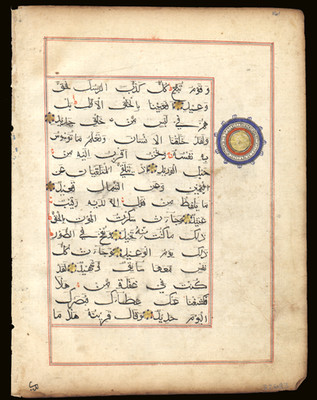 وقوم تبع كل كذب الرسل فحق
وعيد افعيينا بالخلق الاول بل
هم في لبس من خلق جديد
ولقد خلقنا الانسان ونعلم ما توسوس
به نفسه ونحن اقرب اليه من
حبل الوريد اذ يتلقى المتلقيان عن
اليمين وعن الشمال قعيد
ما يلفظ من قول الا لديه رقيب
عتيد وجاءت سكرت الموت بالحق
ذلك ما كنت منه تحيد ونفخ في الصور
ذلك يوم الوعيد وجاءت كل
نفس معها سائق وشهيد لقد
كنت في غفلة من هذا
فكشفنا عنك غطاءك فبصرك
اليوم حديد وقال قرينه هذا ما